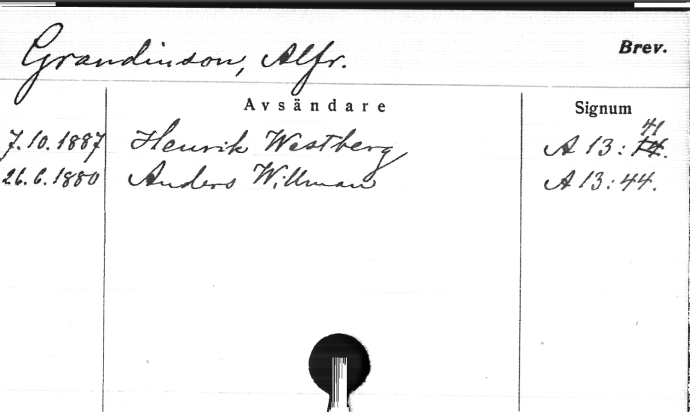 Grandinson, Alfr.
Brev.
Avsändare
Signum
7.10.1887 Henrik Westberg A 13: 41.
26.6.1880 Anders Willman A 13: 44.